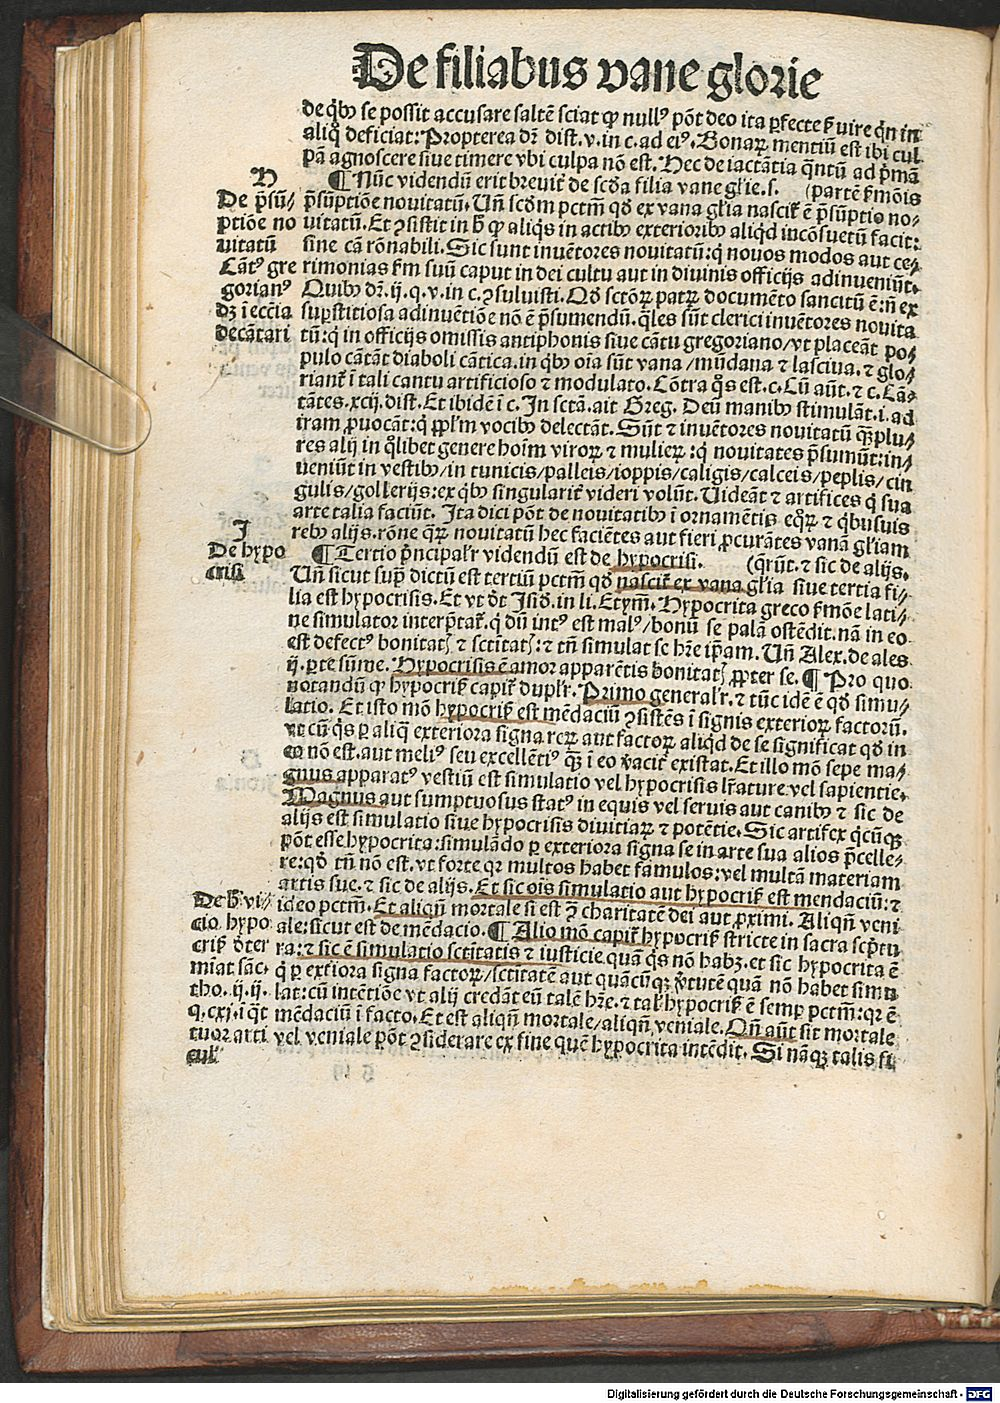 De filiabus vane glorie
de qͥbꝫ se possit accusare saltē sciat ꝙ nullꝰ pōt deo ita ꝑfecte ẜuire qͥn in
aliqͦ deficiat: Propterea dr̄ dist. v. in c. ad eiꝰ. Bonaꝝ mentiū est ibi cul
pā agnoscere siue timere vbi culpa nō est. Hec de iactātia qͣntū ad pͥmā
H
¶ Nūc videndū erit breuit̄ de scd̄a filia vane gl̄ie. s. (partē ẜmōis
De p̄sū⸗
ptiōe no
vitatū
p̄sūptiōe nouitatū. Un̄ scd̓m pctm̄ qd̓ ex vana gl̄ia nascit̄ ē p̄sūptio no⸗
uitatū. Et ꝯsistit in h̄ ꝙ aliqͥs in actibꝫ exterioribꝫ aliqͥd incōsuetū facit:
sine cā rōnabili. Sic sunt inuētores nouitatū: qͥ nouos modos aut ce⸗
Cātꝰ gre
gorianꝰ
dꝫ ī ecc̄ia
decātari
rimonias ẜm suū caput in dei cultu aut in diuinis officijs adinueniūt.
Quibꝫ dr̄. ij. q. v. in c. ꝯsuluisti. Qd̓ sctōꝝ patꝝ documēto sancitū ē: nō ex
suꝑstitiosa adinuētiōe nō ē p̄sumendū. qͣles sūt clerici inuētores nouita
tū: qͥ in officijs omissis antiphonis siue cātu gregoriano/ vt placeāt po⸗
pulo cātāt diaboli cātica. in qͥbꝫ oīa sūt vana/ mūdana ⁊ lasciua. ⁊ glo⸗
riant̄ ī tali cantu artificioso ⁊ modulato. Cōtra qͦs est. c. Cū aūt. ⁊ c. Cā⸗
tātes. xcij. dist. Et ibidē ī c. In sctā. ait Greg. Deū manibꝫ stimulāt. i. ad
iram ꝓuocāt: qͥ ppl̄m vocibꝫ delectāt. Sūt ⁊ inuētores nouitatū qͣꝫplu⸗
res alij in qͦlibet genere hoīm viroꝝ ⁊ mulieꝝ: qͥ nouitates p̄sumūt: in⸗
ueniūt in vestibꝫ/ in tunicis/ palleis/ ioppis/ caligis/ calceis/ peplis/ cin
gulis/ gollerijs: ex qͥbꝫ singularit̄ videri volūt. Uideāt ⁊ artifices qͥ sua
arte talia faciūt. Ita dici pōt de nouitatibꝫ ī ornamētis eqͦꝝ ⁊ qͥbusuis
rebꝫ alijs. rōne qͣꝝ nouitatū hec faciētes aut fieri ꝓcurātes vanā gl̄iam
I
De hypo
crisi
¶ Tertio pͥncipal̓r videndū est de hypocrisi. (qͣrūt. ⁊ sic de alijs.
Un̄ sicut supͣ dictū est tertiū pctm̄ qd̓ nascit̄ ex vana gl̄ia siue tertia fi⸗
lia est hypocrisis. Et vt dt̓ Isid̓. in li. Etym̄. Hypocrita greco ẜmōe lati⸗
ne simulator interp̄tat̄. qͥ dū intꝰ est malꝰ/ bonū se palā ostēdit. nā in eo
est defectꝰ bonitatꝭ ⁊ sctītatꝭ: ⁊ tn̄ simulat se hr̄e ip̄am. Un̄ Alex. de ales
ij. ꝑte sūme. Hypocrisis ē amor apparētis bonitatꝭ ꝓpter se. ¶ Pro quo
notandū ꝙ hypocrisꝭ capit̄ dupl̓r. Primo general̓r. ⁊ tūc idē ē qd̓ simu⸗
latio. Et isto mō hypocrisꝭ est mēdaciū ꝯsistēs ī signis exterioꝝ factorū.
vt cū qͥs ꝑ aliqͣ exteriora signa reꝝ aut factoꝝ aliqͥd de se significat qd̓ in
eo nō est. aut meliꝰ seu excellētiꝰ qͣꝫ ī eo v̄acit̄ existat. Et illo mō sepe ma⸗
gnus apparatꝰ vestiū est simulatio vel hypocrisis lr̄ature vel sapientie.
Magnus aut sumptuosus statꝰ in equis vel seruis aut canibꝫ ⁊ sic de
alijs est simulatio siue hypocrisis diuitiaꝝ ⁊ potētie. Sic artifex qͥcūqꝫ
pōt esse hypocrita: simulādo ꝑ exteriora signa se in arte sua alios p̄celle⸗
re: qd̓ tn̄ nō est. vt forte qꝛ multos habet famulos: vel multā materiam
artis sue. ⁊ sic de alijs. Et sic oīs simulatio aut hypocrisꝭ est mendaciū: ⁊
De h̄ vi⸗
cio hypo
crisꝭ d̓ter
mīat sāc.
tho. ij. ij.
q. cxj. ī qͣt
tuor arti
cul̓
ideo pctm̄. Et aliqn̄ mortale si est ꝯ̄ charitatē dei aut ꝓximi. Aliqn̄ veni
ale: sicut est de mēdacio. ¶ Alio mō capit̄ hypocrisꝭ stricte in sacra scp̄tu
ra: ⁊ sic ē simulatio sctītatis ⁊ iusticie quā qͥs nō habꝫ. et sic hypocrita ē
qͥ ꝑ extiora signa factoꝝ/ sctītatē aut quācūqꝫ v̓tutē quā nō habet simu
lat: cū intētiōe vt alij credāt eū talē hr̄e. ⁊ tal̓ hypocrisꝭ ē semꝑ pctm̄: qꝛ ē
mēdaciū ī facto. Et est aliqn̄ mortale/ aliqn̄ veniale. Qn̄ aūt sit mortale
vel veniale pōt ꝯsiderare ex fine quē hypocrita intēdit. Si nāqꝫ talis fi
Digitalisierung gefördert durch die Deutsche Forschungsgemeinschaft - DFG